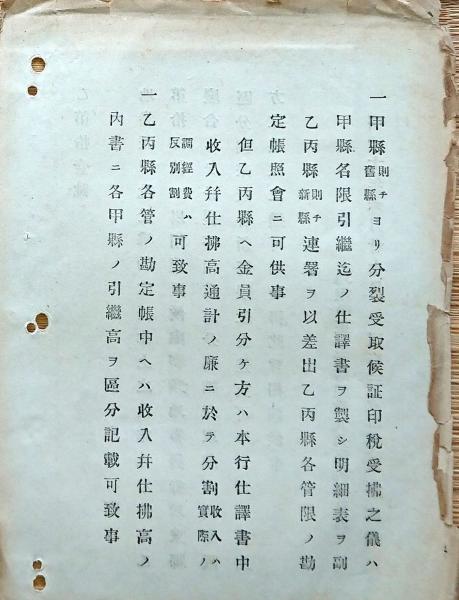 一甲縣則チ舊縣ヨリ分裂受取候証印稅受拂之儀ハ
甲縣名限引繼迄ノ仕譯書ヲ製シ明細表ヲ副
乙丙縣則チ新縣連署ヲ以差出乙丙縣各管限ノ勘
定帳照會ニ可供事
但乙丙縣ヘ金員引分ケ方ハ本行仕譯書中
收入幷仕拂高通計ノ廉ニ於テ分割收入ハ實際ノ
調經費ハ反別割可致事
一乙丙縣各管ノ勘定帳中ヘハ收入幷仕拂高ノ
內書ニ各甲縣ノ引繼高ヲ區分記載可致事